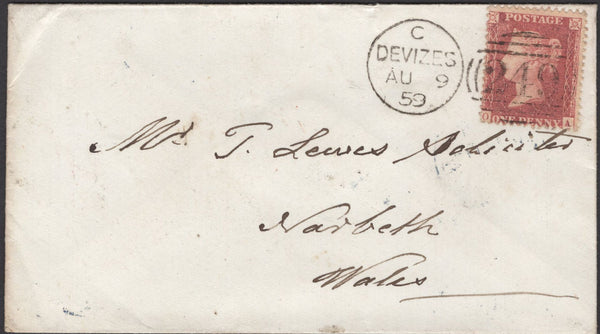 C
DEVIZES
AU 9
59
POSTAGE
249
ONE PENNY
A
Mr. T. Lewes Solicitor
Narbeth
Wales